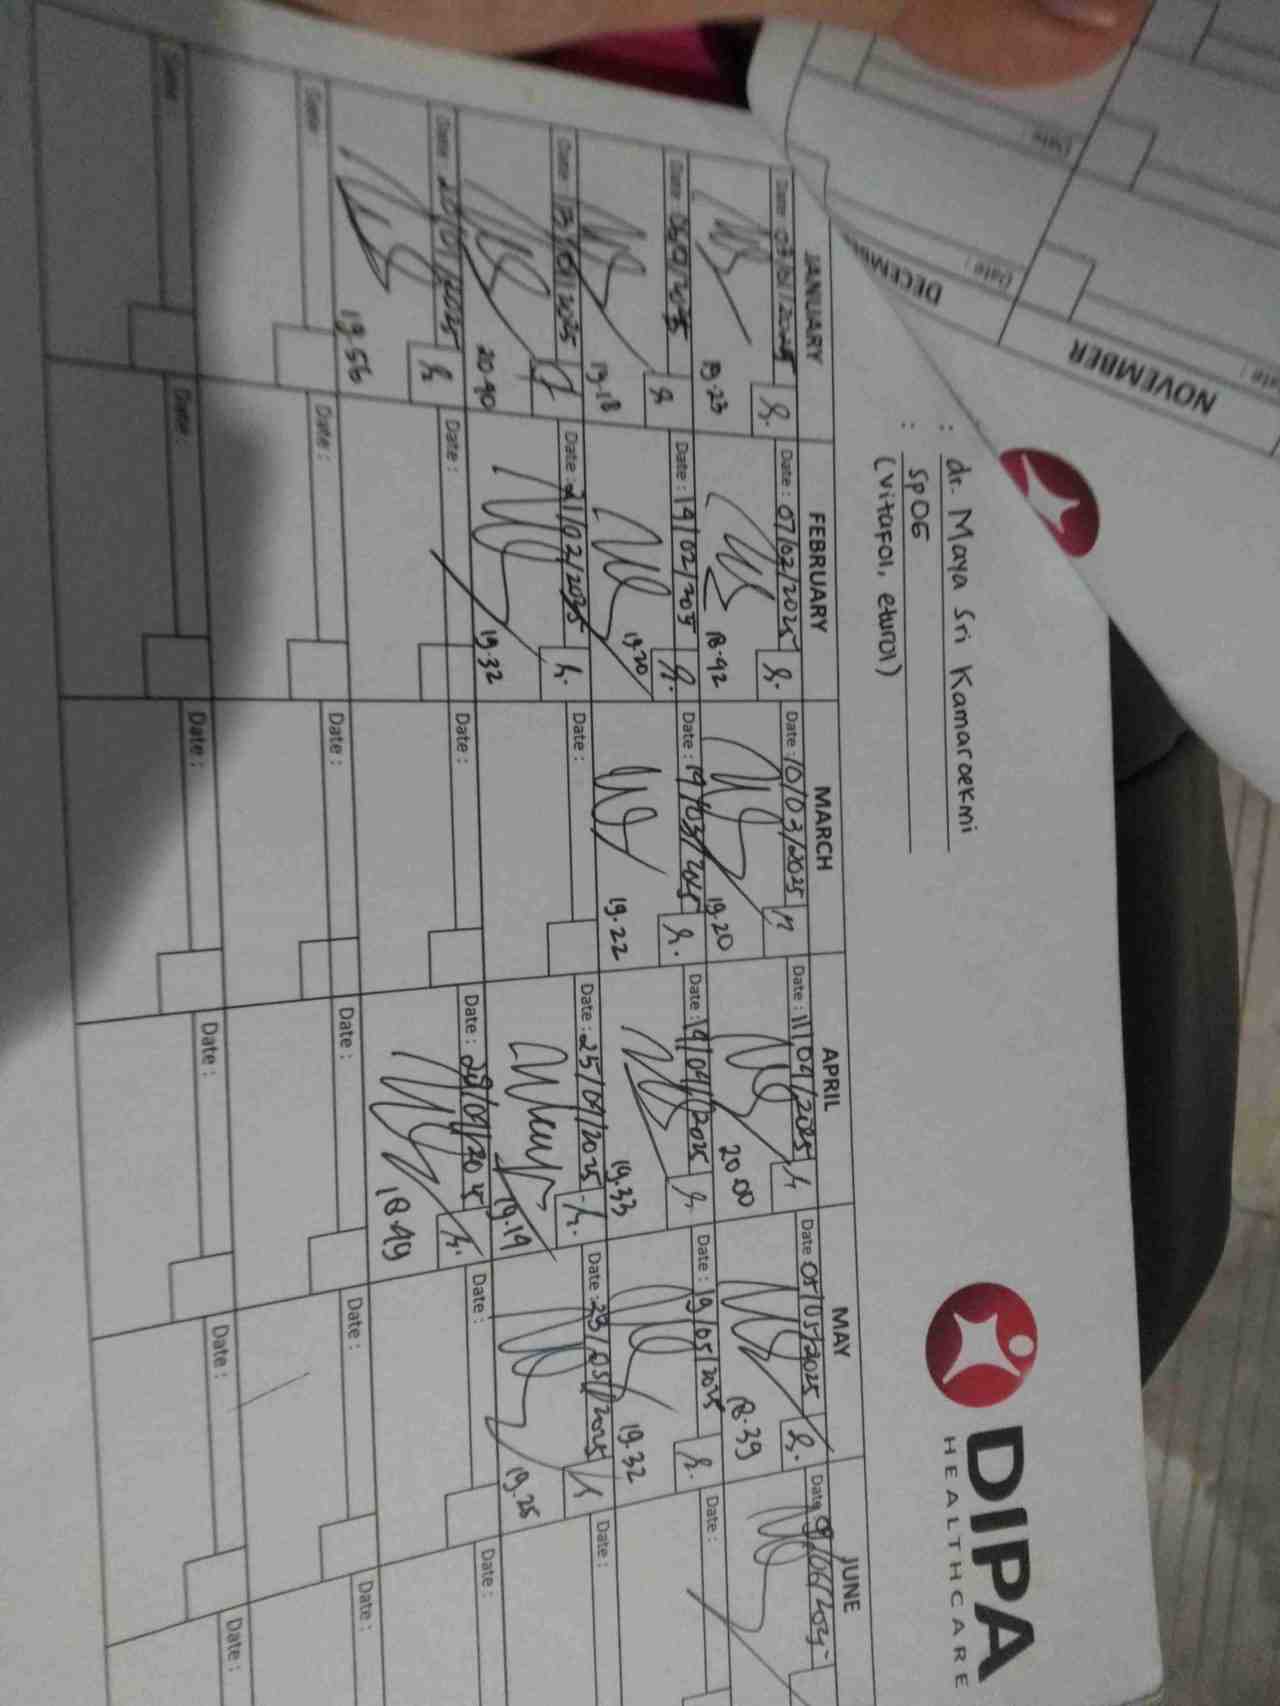 DIPA
HEALTHCARE
: dr. Maya Sri Kamaroekmi
: SpOG
(Vitafol, eturol)
NOVEMBER
DECEMBE
Date :
Date :
JANUARY FEBRUARY MARCH APRIL MAY JUNE
Date : 03/01/2025 Date : 07/02/2025 Date : 10/03/2025 Date : 11/04/2025 Date : 05/05/2025 Date 09/06/2025
19.23 18.42 19.20 20.00 18.39
Date : 06/01/2025 Date : 14/02/2025 Date : 19/03/2025 Date : 14/04/2025 Date : 19/05/2025 Date :
19.18 19.20 19.22 19.33 19.32
Date : 13/01/2025 Date : 21/02/2025 Date : Date : 25/04/2025 Date : 23/05/2025 Date :
20.40 19.32 19.14 19.25
Date : 20/01/2025 Date : Date : Date : 28/04/2025 Date : Date :
19.56 18.49
Date : Date : Date : Date : Date : Date :
Date : Date : Date : Date : Date : Date :